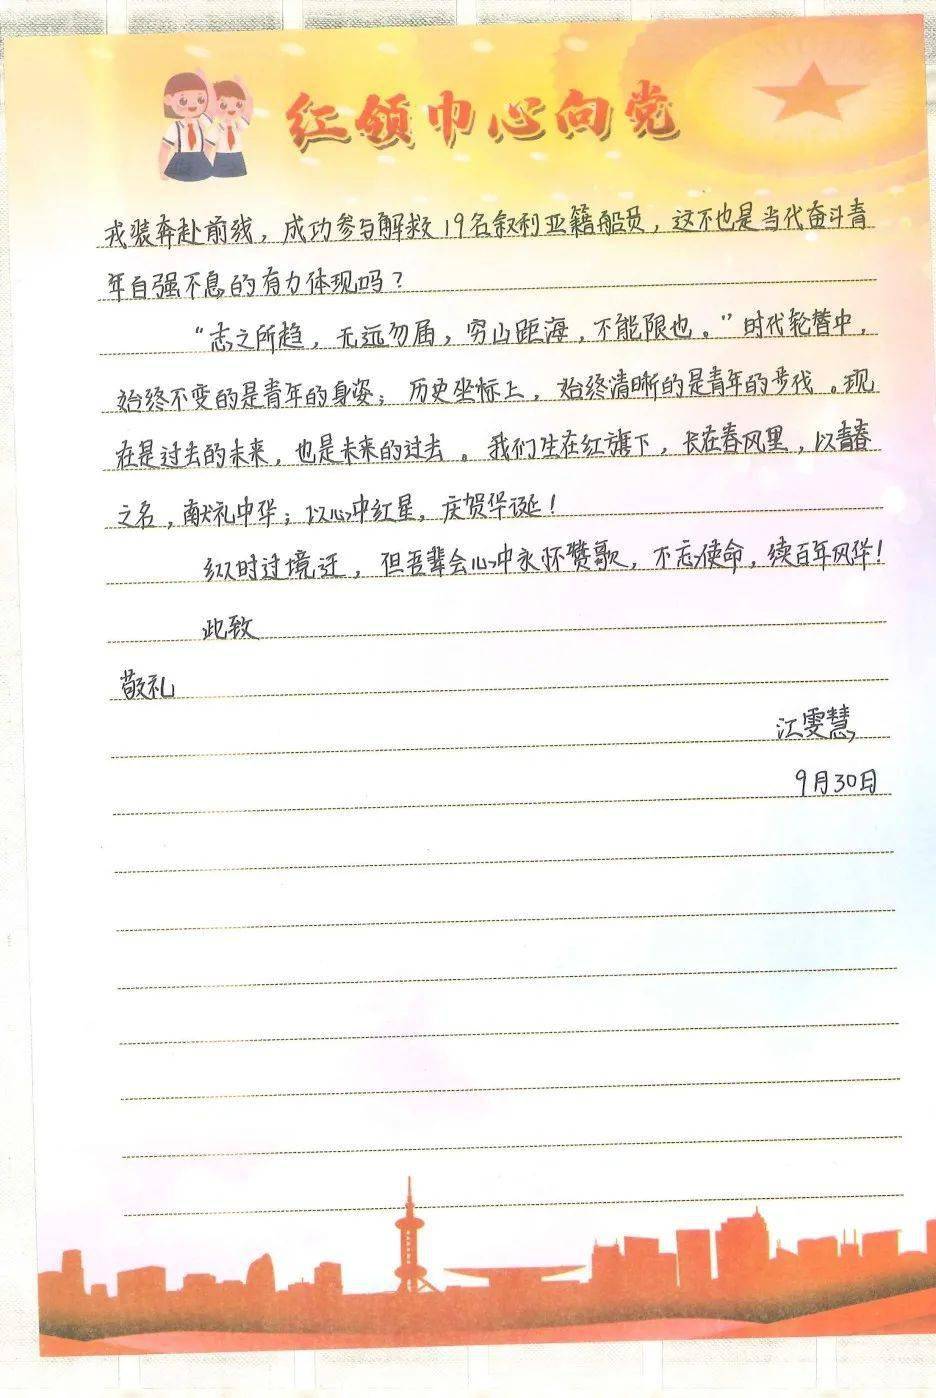 红领巾心向党
戎装奔赴前线，成功参与解救19名叙利亚籍船员，这不也是当代奋斗青
年自强不息的有力体现吗？
“志之所趋，无远勿届，穷山距海，不能限也。”时代轮替中，
始终不变的是青年的身姿；历史坐标上，始终清晰的是青年的步伐。现
在是过去的未来，也是未来的过去。我们生在红旗下，长在春风里，以青春
之名，献礼中华；以心中红星，庆贺华诞！
纵时过境迁，但吾辈会心中永怀赞歌，不忘使命，续百年风华！
此致
敬礼
江雯慧
9月30日